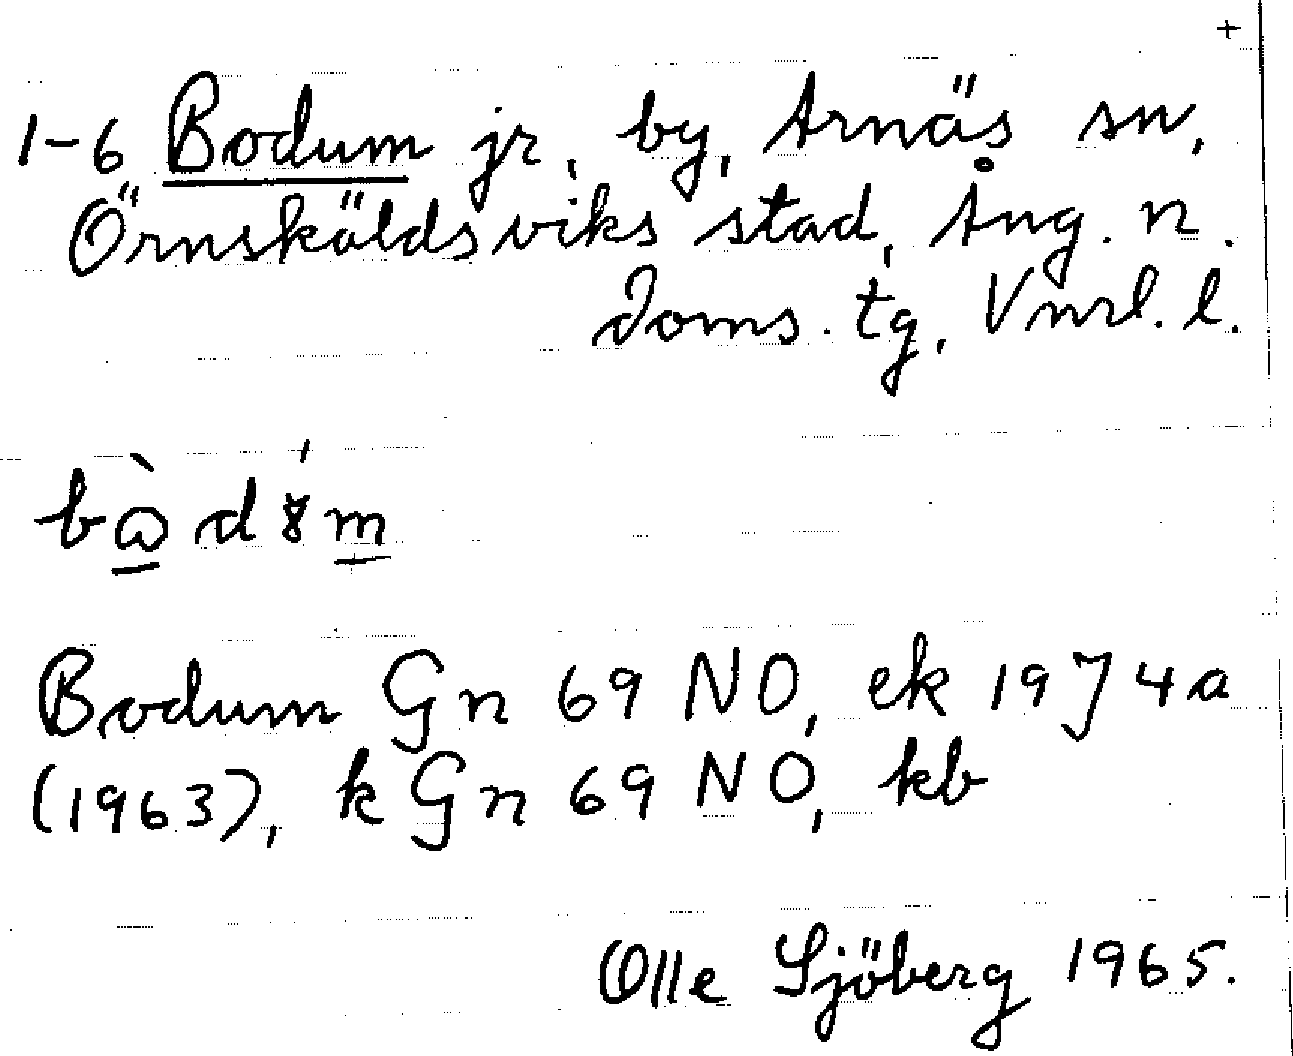 +
1-6 Bodum jr, by, Arnäs sn,
Örnsköldsviks stad, Ång. n.
Doms. tg, Vnrl. l.
Bodum Gn 69 NO, ek 19 J 4 a
(1963), k Gn 69 NO, kb
Olle Sjöberg 1965.